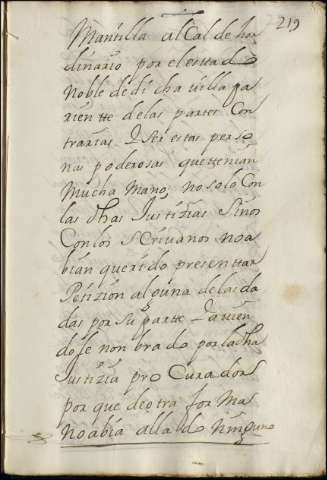 219
Mantilla alcalde hor
dinario por el estado
noble de dicha villa pa
riente de las partes Con
trarias. Y ser estas perso
nas poderosas que tenian
mucha mano, no solo Con
las dhas Justizias Sino
Con los Scrivanos no a
bian querido presenttar
Petizion alguna de las da
das por su partte Y avien
dose nonbrado por la dha
Justizia pro Curador
por que de otra for Ma
No abia allado Ninguno